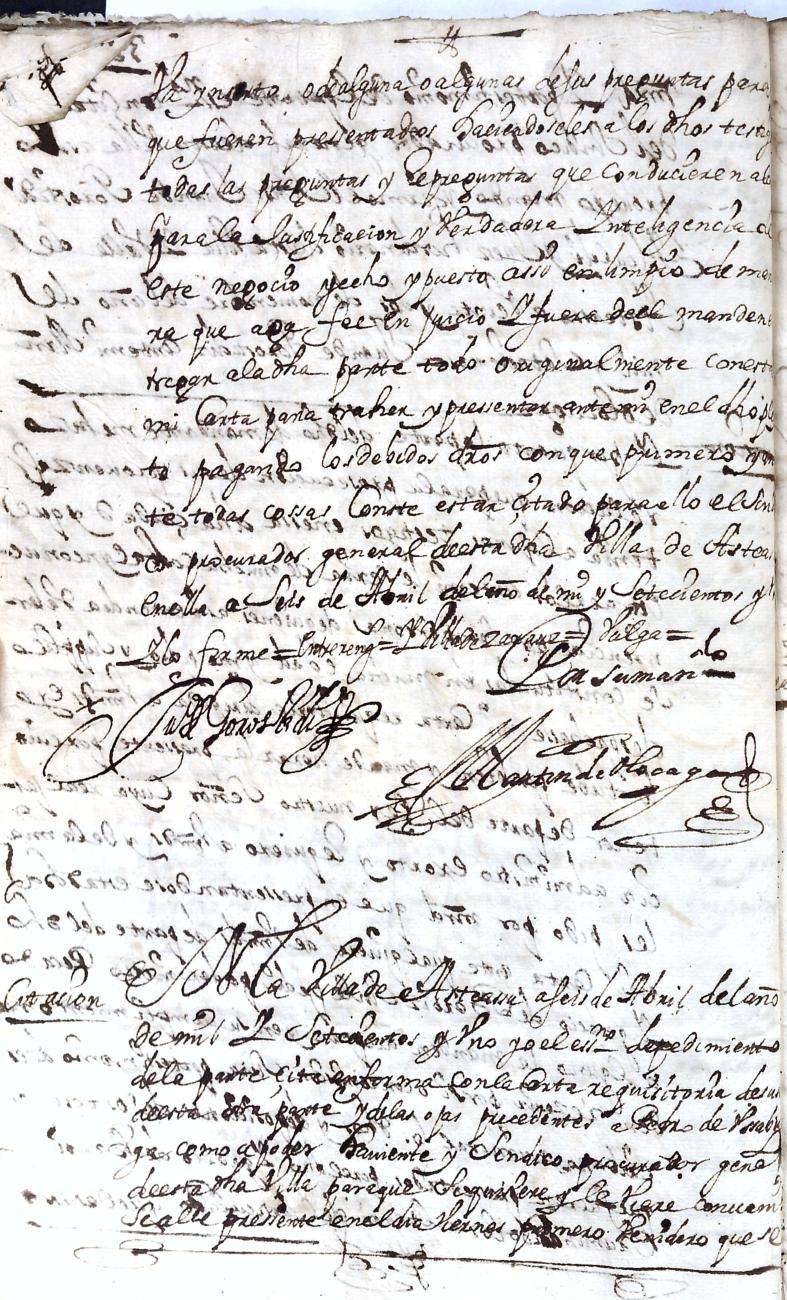 Va ynserta o de alguna o algunas de sus preguntas para
que fueren pressentados haciendoseles a los dhos testig
todas las preguntas y repreguntas que conducieren
para la Justificacion y Verdadera Ynteligencia de
este negocio y echo y puesto assi en limpio de mane
ra que aga fee en Juicio y fuera de el manden en
tregar a la dha parte todo originalmente con esta
mi Carta para traher y pressentar ante mi en el dho pley
to pagando los debidos dros con que primero y an
te todas cossas Conste estar çitado para ello el Sindi
co procurador general de esta dha Villa de Asteasu
en ella a Seis de Abril del año de mil y Setecientos y V
no firme = Entrereng = Villa de = Valga =
Por su mando
Martin de
Citacion
En la Villa de Asteassu a seis de Abril del año
de mil y Setecientos y Vno yo el essno de pedimiento
de la parte çite en forma con la Carta requisitoria de su
de esta otra parte y de las ojas precedentes a Pedro de
ga como a poder haviente y Sendico procurador gene
de esta dha Villa para que Si quisiere y le
se alle pressente en el dia Viernes primero Venidero que se